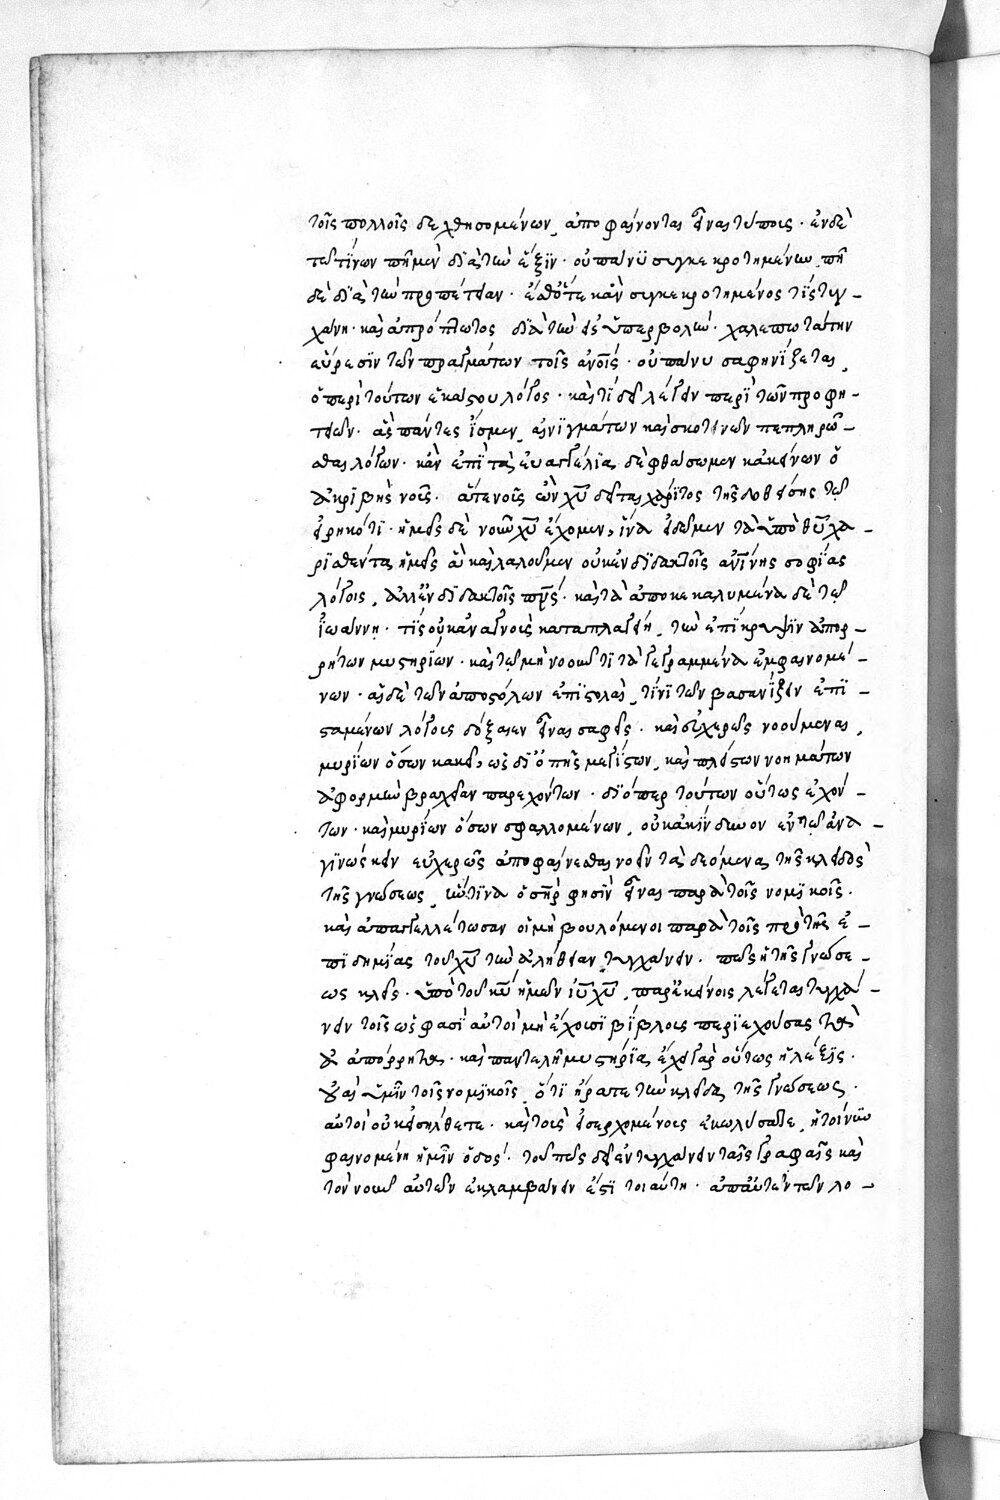 τοῖς πολλοῖς δεχθησομένων, ἀποφαίνονται εἶναι τύποις· ἐνδέ
τε τινων πῆ μὲν διὰ τὴν ἕξιν· οὐ πάνυ συγκεκροτημένων, πῆ
δὲ διὰ τὴν προπέτειαν· ἔσθ' ὅτε κἂν συγκεκροτημένος τίς τυγ-
χάνῃ· καὶ ἀπρόπτωτος διὰ τὴν εἰς ὑπερβολὴν· χαλεπωτάτην
εὕρεσιν τῶν πραγμάτων τοῖς ἀνοις· οὐ πάνυ σαφηνίζεται,
ὁ περὶ τούτων ἑκάστου λόγος· καὶ τί δεῖ λέγειν περὶ τῶν προφη-
τειῶν· ἃς πάντες ἴσμεν, αἰνιγμάτων καὶ σκοτεινῶν πεπληρῶ-
σθαι λόγων· κἂν ἐπὶ τὰ εὐαγγέλια δὲ φθάσωμεν κἀκείνων ὁ
ἀκριβὴς νοῦς· ἅτε νοῦς ὢν χυ δεῖται χάριτος τῆς δοθείσης τῷ
εἰρηκότι· ἡμεῖς δὲ νοῦν χυ ἔχομεν, ἵνα εἰδῶμεν τὰ ὑπὸ θυ χα-
ρισθέντα ἡμῖν ἃ καὶ λαλοῦμεν οὐκ ἐν διδακτοῖς ἀνίνης σοφίας
λόγοις, ἀλλ' ἐν διδακτοῖς πνς· καὶ τὰ ἀποκεκαλυμμένα δὲ τῷ
ἰωάννῃ· τίς οὐκ ἂν ἀναγνοὺς καταπλαγείη, τὴν ἐπίκρυψιν ἀπορ-
ρήτων μυστηρίων· καὶ τῷ μὴ νοοῦντι τὰ γεγραμμένα ἐμφαινομέ-
νων· αἱ δὲ τῶν ἀποστόλων ἐπιστολαὶ, τίνι τῶν βασανίζειν ἐπι-
σταμένων λόγους δόξαιεν εἶναι σαφεῖς· καὶ εὐχερῶς νοούμεναι,
μυρίων ὅσων κἀκεῖ, ὡς δι' ὀπῆς μεγίστων, καὶ πλείστων νοημάτων
ἀφορμὴν βραχεῖαν παρεχόντων· διόπερ τούτων οὕτως ἐχόν-
των· καὶ μυρίων ὅσων σφαλλομένων, οὐκ ἀκίνδυνον ἐν τῷ ἀνα-
γινώσκειν εὐχερῶς ἀποφαίνεσθαι νοεῖν τὰ δεόμενα τῆς κλειδὸς
τῆς γνώσεως, ἥν τινα ὁ σηρ φησὶν εἶναι παρὰ τοῖς νομικοῖς·
καὶ ἀπαγγελλέτωσαν οἱ μὴ βουλόμενοι παρὰ τοῖς πρὸ τῆς ἐ-
πιδημίας τοῦ χυ τὴν ἀλήθειαν τυγχάνειν· πῶς ἡ τῆς γνώσε-
ως κλεὶς· ὑπὸ τοῦ κυ ἡμῶν ιυ χυ, παρ' ἐκείνοις λέγεται τυγχά-
νειν τοῖς ὡς φασὶ αὐτοὶ μὴ ἔχουσι βίβλους περιεχούσας τὰ
ἀπόρρητα· καὶ παντελῆ μυστήρια, ἔχει γὰρ οὕτως ἡ λέξις·
οὐαὶ ὑμῖν τοῖς νομικοῖς, ὅτι ἤρατε τὴν κλεῖδα τῆς γνώσεως·
αὐτοὶ οὐκ εἰσήλθετε· καὶ τοὺς εἰσερχομένους ἐκωλύσατε, ἡ τοίνυν
φαινομένη ἡμῖν ὁδὸς· τοῦ πῶς δεῖ ἐντυγχάνειν ταῖς γραφαῖς καὶ
τὸν νοῦν αὐτῶν ἐκλαμβάνειν ἐστὶ τοιαύτη· ἀπ' αὐτῶν τῶν λο-